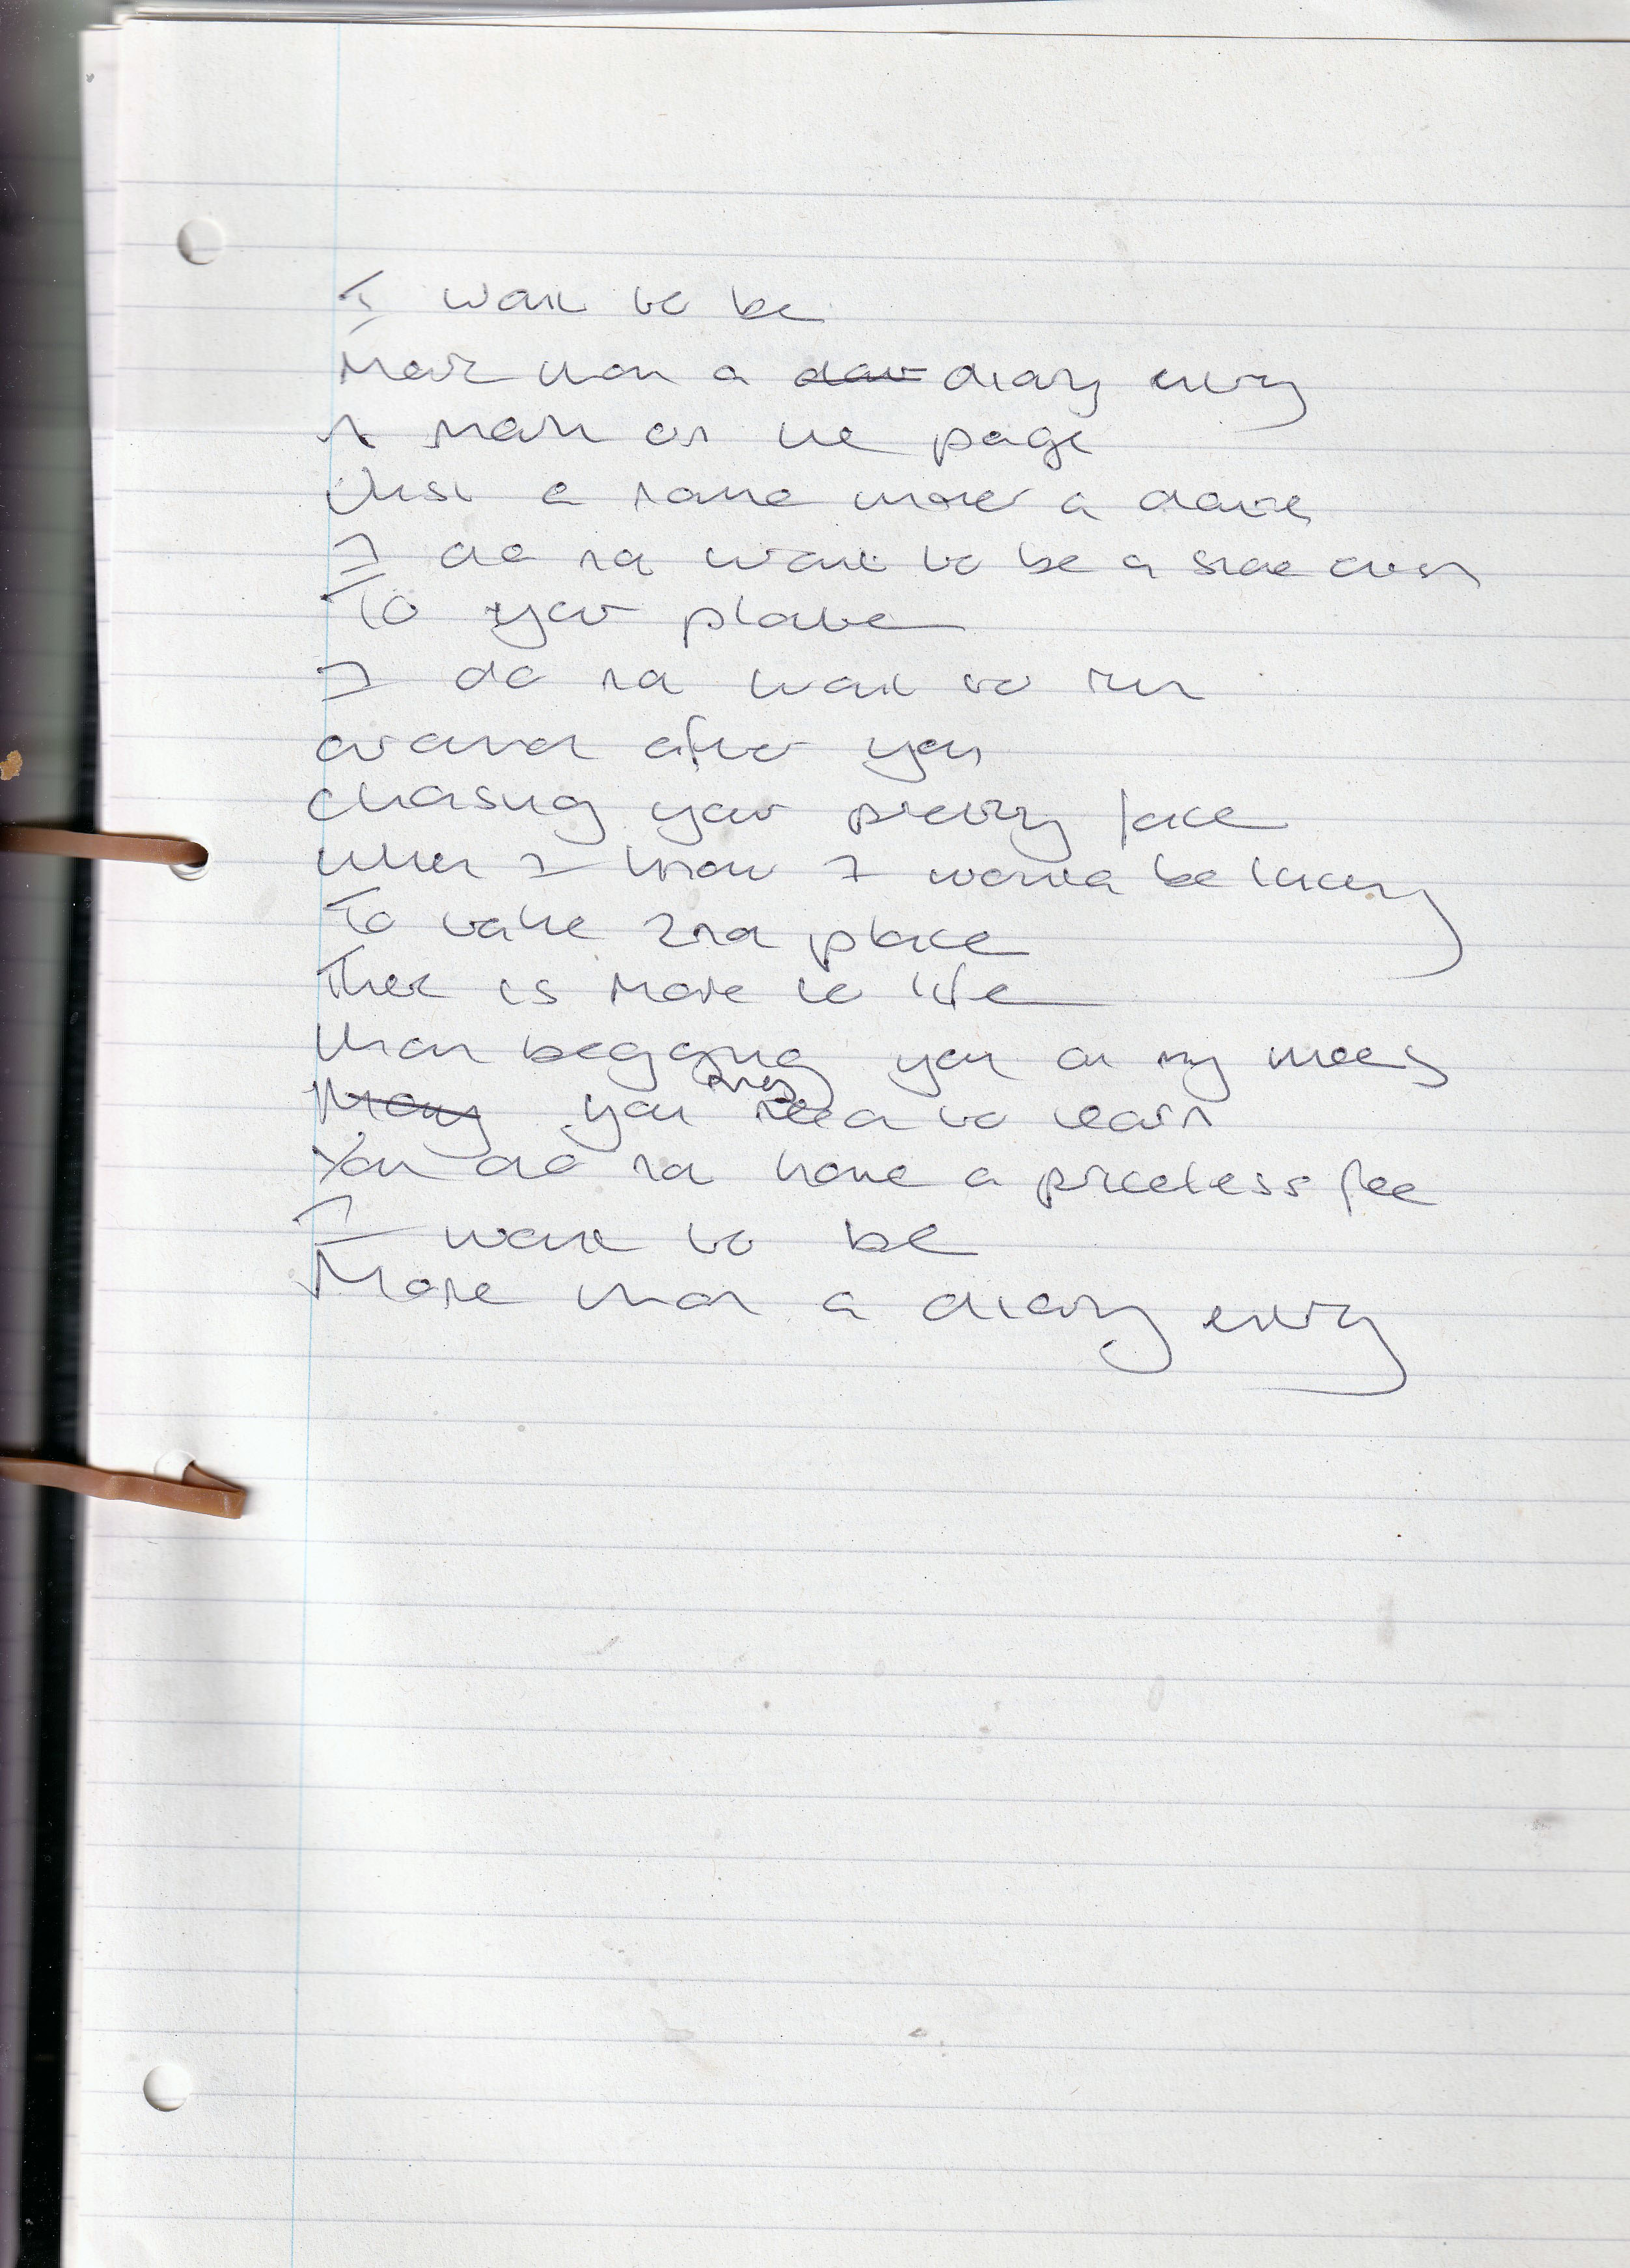 I want to be
More than a diary entry
A mark on the page
Just a name under a date
I do not want to be a side dish
To your plate
I do not want to run
around after you
chasing your pretty face
When I know I wanna be lucky
To take 2nd place
There is more to life
than begging you on my knees
you need to learn
You do not have a priceless fee
I want to be
More than a diary entry